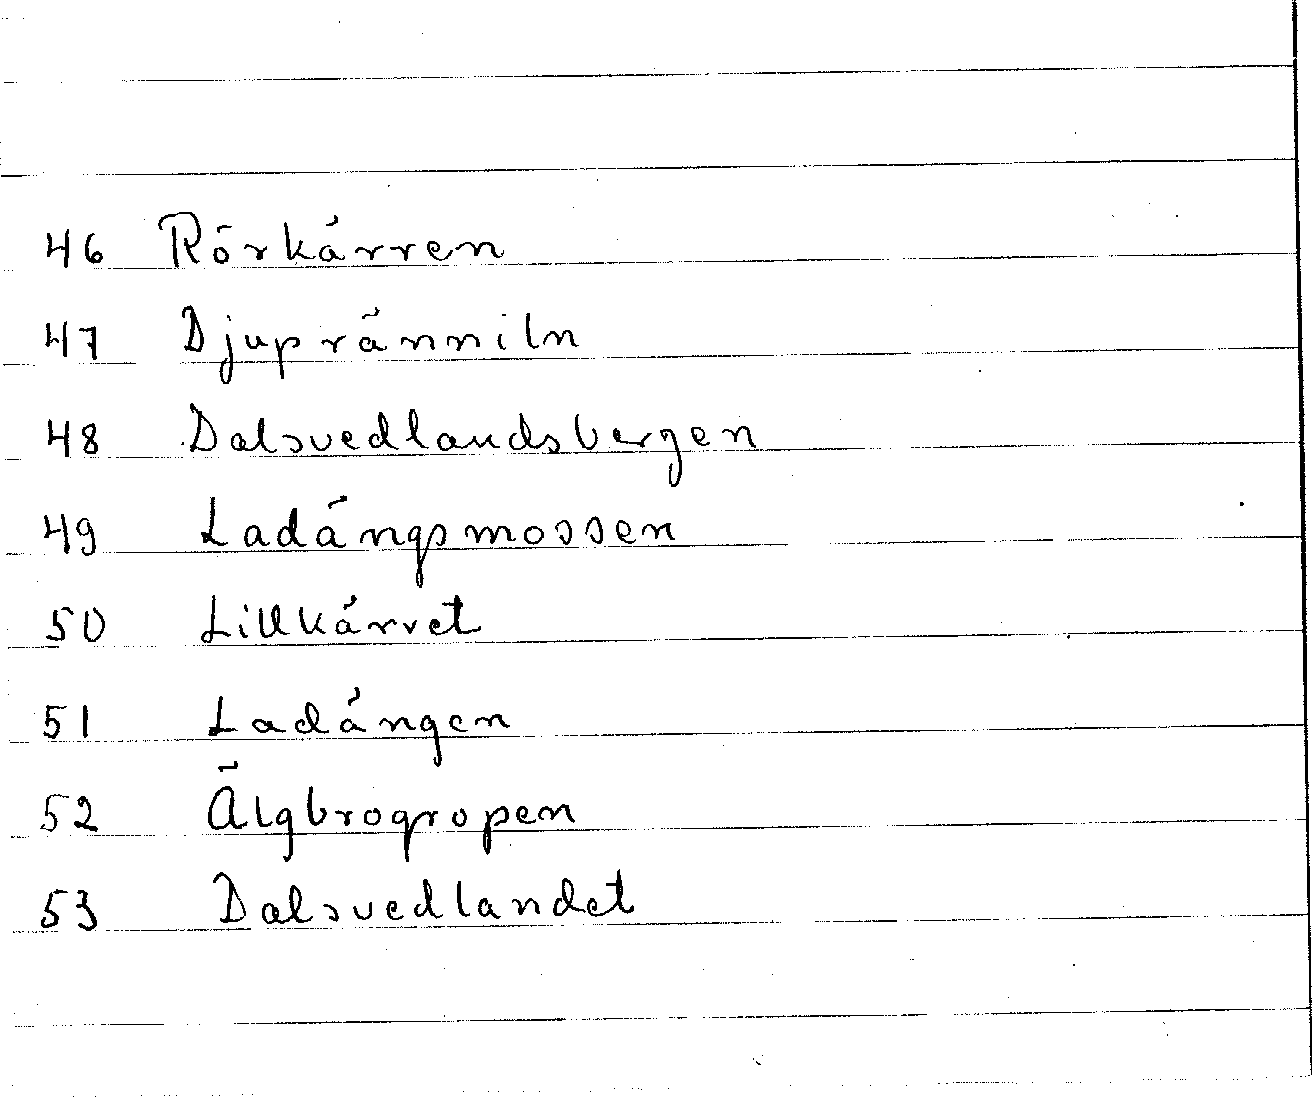 46 Rörkärren
47 Djupränniln
48 Dalsvedlandsbergen
49 Ladängsmossen
50 Lillkärret
51 Ladängen
52 Älgbrogropen
53 Dalsvedlandet